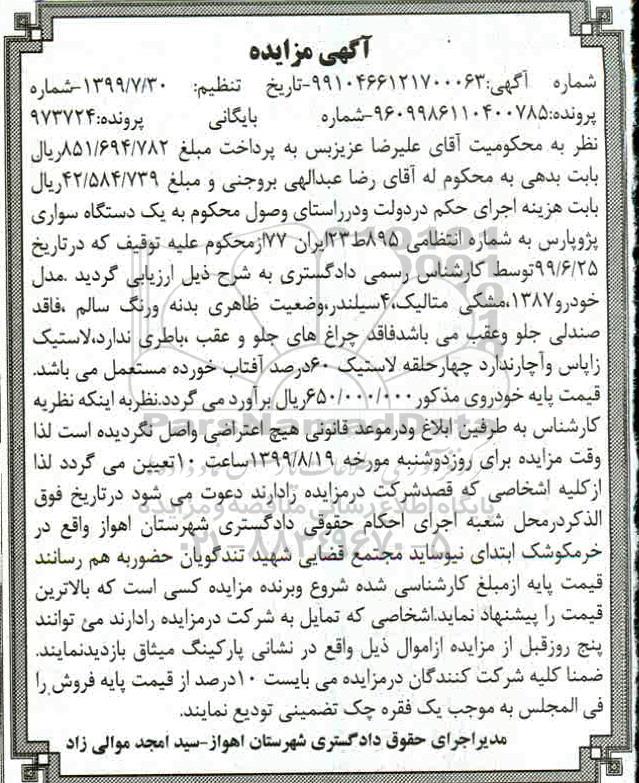 آگهی مزایده
شماره آگهی:۹۹۱۰۴۶۶۱۲۱۷۰۰۰۶۳-تاریخ تنظیم: ۱۳۹۹/۷/۳۰-شماره
پرونده:۹۶۰۹۹۸۶۱۱۰۴۰۰۷۸۵-شماره بایگانی پرونده:۹۷۳۷۲۴
نظر به محکومیت آقای علیرضا عزیزبس به پرداخت مبلغ ۸۵۱/۶۹۴/۷۸۲ریال
بابت بدهی به محکوم له آقای رضا عبدالهی بروجنی و مبلغ ۴۲/۵۸۴/۷۳۹ریال
بابت هزینه اجرای حکم دردولت ودرراستای وصول محکوم به یک دستگاه سواری
پژوپارس به شماره انتظامی ۸۹۵ط۲۳ایران ۷۷ازمحکوم علیه توقیف که درتاریخ
۹۹/۶/۲۵توسط کارشناس رسمی دادگستری به شرح ذیل ارزیابی گردید .مدل
خودرو۱۳۸۷،مشکی متالیک،۴سیلندر،وضعیت ظاهری بدنه ورنگ سالم ،فاقد
صندلی جلو وعقب می باشدفاقد چراغ های جلو و عقب ،باطری ندارد،لاستیک
زاپاس وآچارندارد چهارحلقه لاستیک ۶۰درصد آفتاب خورده مستعمل می باشد.
قیمت پایه خودروی مذکور۶۵۰/۰۰۰/۰۰۰ریال برآورد می گردد.نظربه اینکه نظریه
کارشناس به طرفین ابلاغ ودرموعد قانونی هیچ اعتراضی واصل نگردیده است لذا
وقت مزایده برای روزدوشنبه مورخه ۱۳۹۹/۸/۱۹ساعت ۱۰تعیین می گردد لذا
ازکلیه اشخاصی که قصدشرکت درمزایده رادارند دعوت می شود درتاریخ فوق
الذکردرمحل شعبه اجرای احکام حقوقی دادگستری شهرستان اهواز واقع در
خرمکوشک ابتدای نیوساید مجتمع قضایی شهید تندگویان حضوربه هم رسانند
قیمت پایه ازمبلغ کارشناسی شده شروع وبرنده مزایده کسی است که بالاترین
قیمت را پیشنهاد نماید.اشخاصی که تمایل به شرکت درمزایده رادارند می توانند
پنج روزقبل از مزایده ازاموال ذیل واقع در نشانی پارکینگ میثاق بازدیدنمایند.
ضمنا کلیه شرکت کنندگان درمزایده می بایست ۱۰درصد از قیمت پایه فروش را
فی المجلس به موجب یک فقره چک تضمینی تودیع نمایند.
مدیراجرای حقوق دادگستری شهرستان اهواز-سید امجد موالی زاد